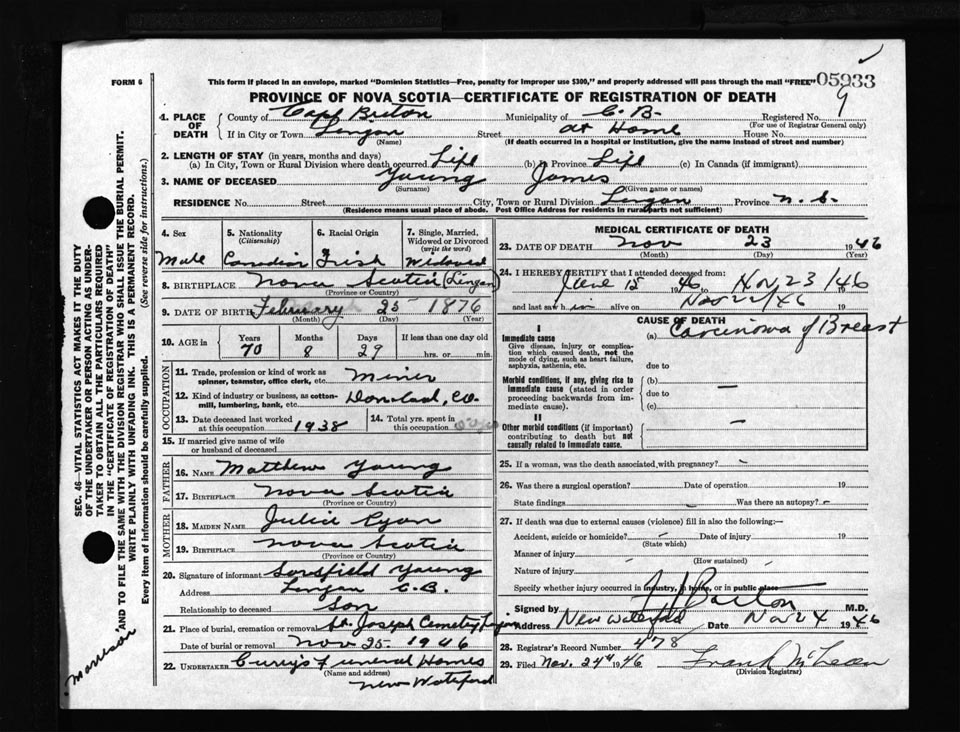 FORM 6
This form if placed in an envelope, marked "Dominion Statistics—Free, penalty for improper use $300," and properly addressed will pass through the mail "FREE"
05933
PROVINCE OF NOVA SCOTIA—CERTIFICATE OF REGISTRATION OF DEATH
1. PLACE OF DEATH
County of Cape Breton Municipality of C. B. Registered No. 9
(For use of Registrar General only)
If in City or Town Lingan Street at Home House No.
(Name) (If death occurred in a hospital or institution, give the name instead of street and number)
2. LENGTH OF STAY (in years, months and days)
(a) In City, Town or Rural Division where death occurred Life (b) In Province Life (c) In Canada (if immigrant)
3. NAME OF DECEASED Young James
(Surname) (Given name or names)
RESIDENCE No. Street City, Town or Rural Division Lingan Province N. S.
(Residence means usual place of abode. Post Office Address for residents in rural parts not sufficient)
4. Sex Male
5. Nationality (Citizenship) Canadian
6. Racial Origin Irish
7. Single, Married, Widowed or Divorced (write the word) Widowed
8. BIRTHPLACE Nova Scotia (Lingan)
(Province or Country)
9. DATE OF BIRTH February 25 1876
(Month) (Day) (Year)
10. AGE in Years 70 Months 8 Days 29 If less than one day old hrs. or min.
OCCUPATION
11. Trade, profession or kind of work as spinner, teamster, office clerk, etc. Miner
12. Kind of industry or business, as cotton-mill, lumbering, bank, etc.
13. Date deceased last worked at this occupation 1938
14. Total yrs. spent in this occupation
15. If married give name of wife or husband of deceased
FATHER
16. NAME Matthew Young
17. BIRTHPLACE Nova Scotia
(Province or Country)
MOTHER
18. MAIDEN NAME Julia Ryan
19. BIRTHPLACE Nova Scotia
(Province or Country)
20. Signature of informant Sarsfield Young
Address Lingan C. B.
Relationship to deceased Son
21. Place of burial, cremation or removal St. Joseph Cemetry Lingan
Date of burial or removal Nov 25 - 1946
22. UNDERTAKER Curry's Funeral Homes
(Name and address)
New Waterford
MEDICAL CERTIFICATE OF DEATH
23. DATE OF DEATH Nov 23 1946
(Month) (Day) (Year)
24. I HEREBY CERTIFY that I attended deceased from:
June 15 1946 to Nov 23/46 19
and last saw him alive on Nov 22/46 19
CAUSE OF DEATH
I
Immediate cause
Give disease, injury or complication which caused death, not the mode of dying, such as heart failure, asphyxia, asthenia, etc.
(a) Carcinoma of Breast
due to
Morbid conditions, if any, giving rise to immediate cause (stated in order proceeding backwards from immediate cause).
(b) —
due to
(c)
II
Other morbid conditions (if important) contributing to death but not causally related to immediate cause. —
25. If a woman, was the death associated with pregnancy? -
26. Was there a surgical operation? - Date of operation 19
State findings - Was there an autopsy? -
27. If death was due to external causes (violence) fill in also the following:—
Accident, suicide or homicide? - Date of injury 19
(State which)
Manner of injury
(How sustained)
Nature of injury
Specify whether injury occurred in industry, in home, or in public place
Signed by M.D.
Address New Waterford Date Nov 24 1946
28. Registrar's Record Number 478
29. Filed Nov. 24th 1946 Frank McLean
(Division Registrar)
SEC. 46—VITAL STATISTICS ACT MAKES IT THE DUTY
OF THE UNDERTAKER OR PERSON ACTING AS UNDERTAKER TO OBTAIN ALL THE PARTICULARS REQUIRED
IN THE "CERTIFICATE OF REGISTRATION OF DEATH"
AND TO FILE THE SAME WITH THE DIVISION REGISTRAR WHO SHALL ISSUE THE BURIAL PERMIT.
WRITE PLAINLY WITH UNFADING INK. THIS IS A PERMANENT RECORD.
Every item of information should be carefully supplied. (See reverse side for instructions.)